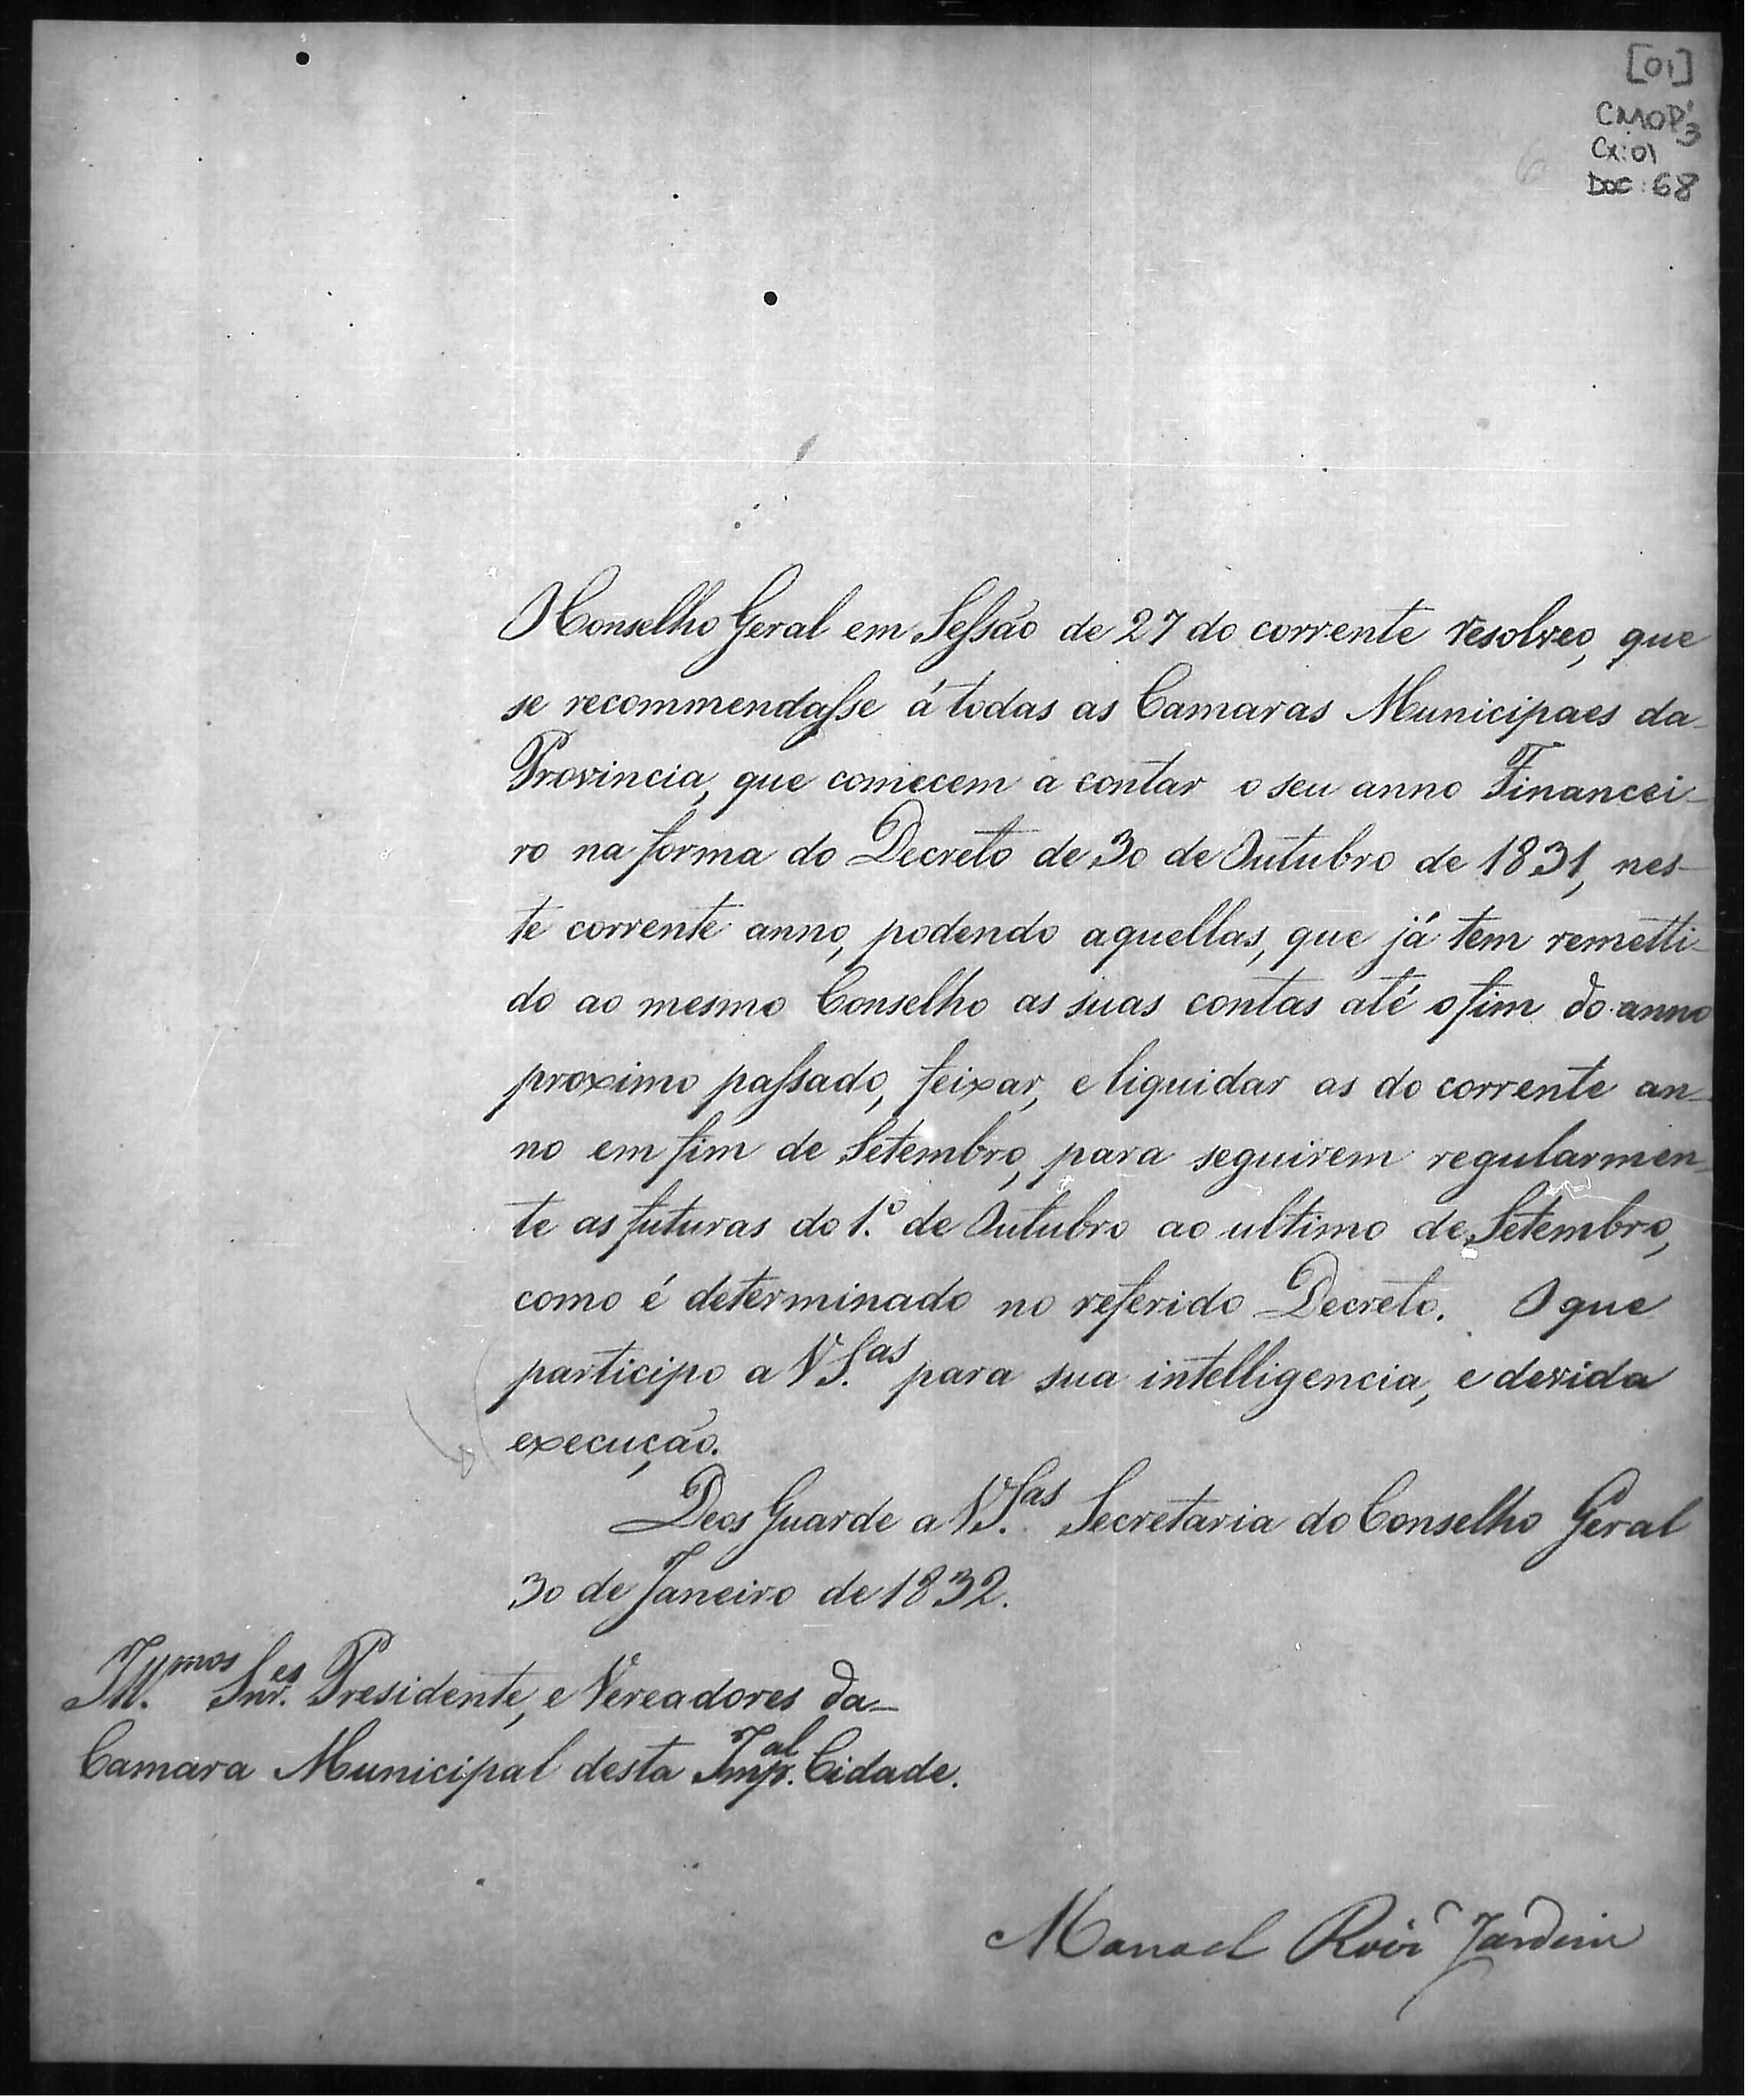 [01]
CMOP3
Cx: 01
DOC: 68
O Conselho Geral em Sessão de 27 do corrente resolveo, que
se recommendasse á todas as Camaras Municipaes da
Provincia, que comecem a contar o seu anno Financei-
ro na forma do Decreto de 30 de Outubro de 1831, nes-
te corrente anno, podendo aquellas, que já tem remetti-
do ao mesmo Conselho as suas contas até o fim do anno
proximo passado, feixar, e liquidar as do corrente an-
no em fim de Setembro, para seguirem regularmen-
te as futuras do 1.º de Outubro ao ultimo de Setembro,
como é determinado no referido Decreto. O que
participo a V S.as para sua intelligencia, e devida
execução.
Deos Guarde a V S.as Secretaria do Conselho Geral
30 de Janeiro de 1832.
Ill.mos Snr.es Presidente, e Vereadores da
Camara Municipal desta Imp.al Cidade.
Manoel Roiz Jardim